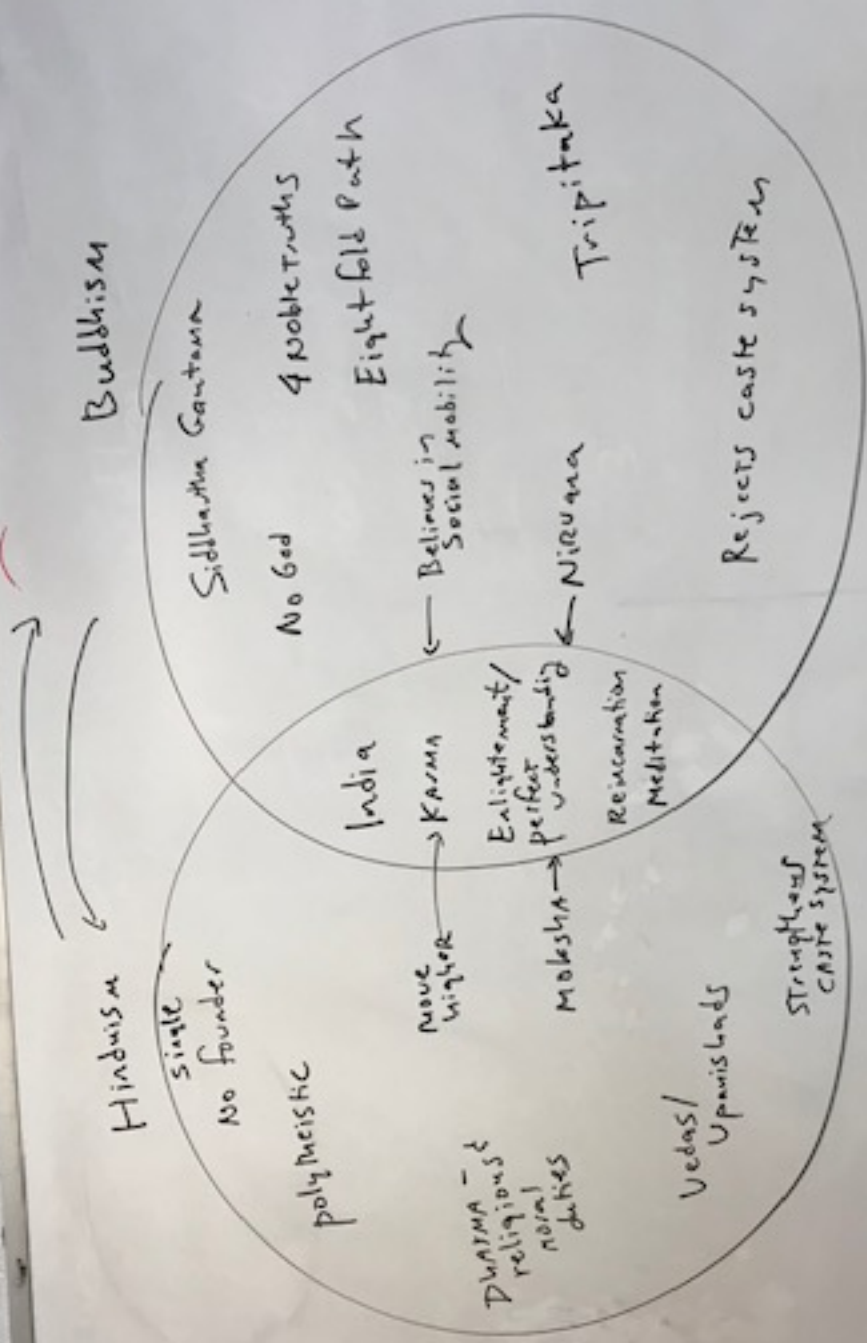 Hinduism
Buddhism
single
No founder
polytheistic
move
higher
DHARMA -
religious &
moral
duties
MOKSHA
Vedas/
Upanishads
Strengthens
CASTE SYSTEM
India
KARMA
Enlightement/
perfect
understanding
Reincarnation
Meditation
Siddhartha Gautama
No God
4 Noble Truths
Eight fold Path
Believes in
Social mobility
NIRVana
Tripitaka
Rejects caste system